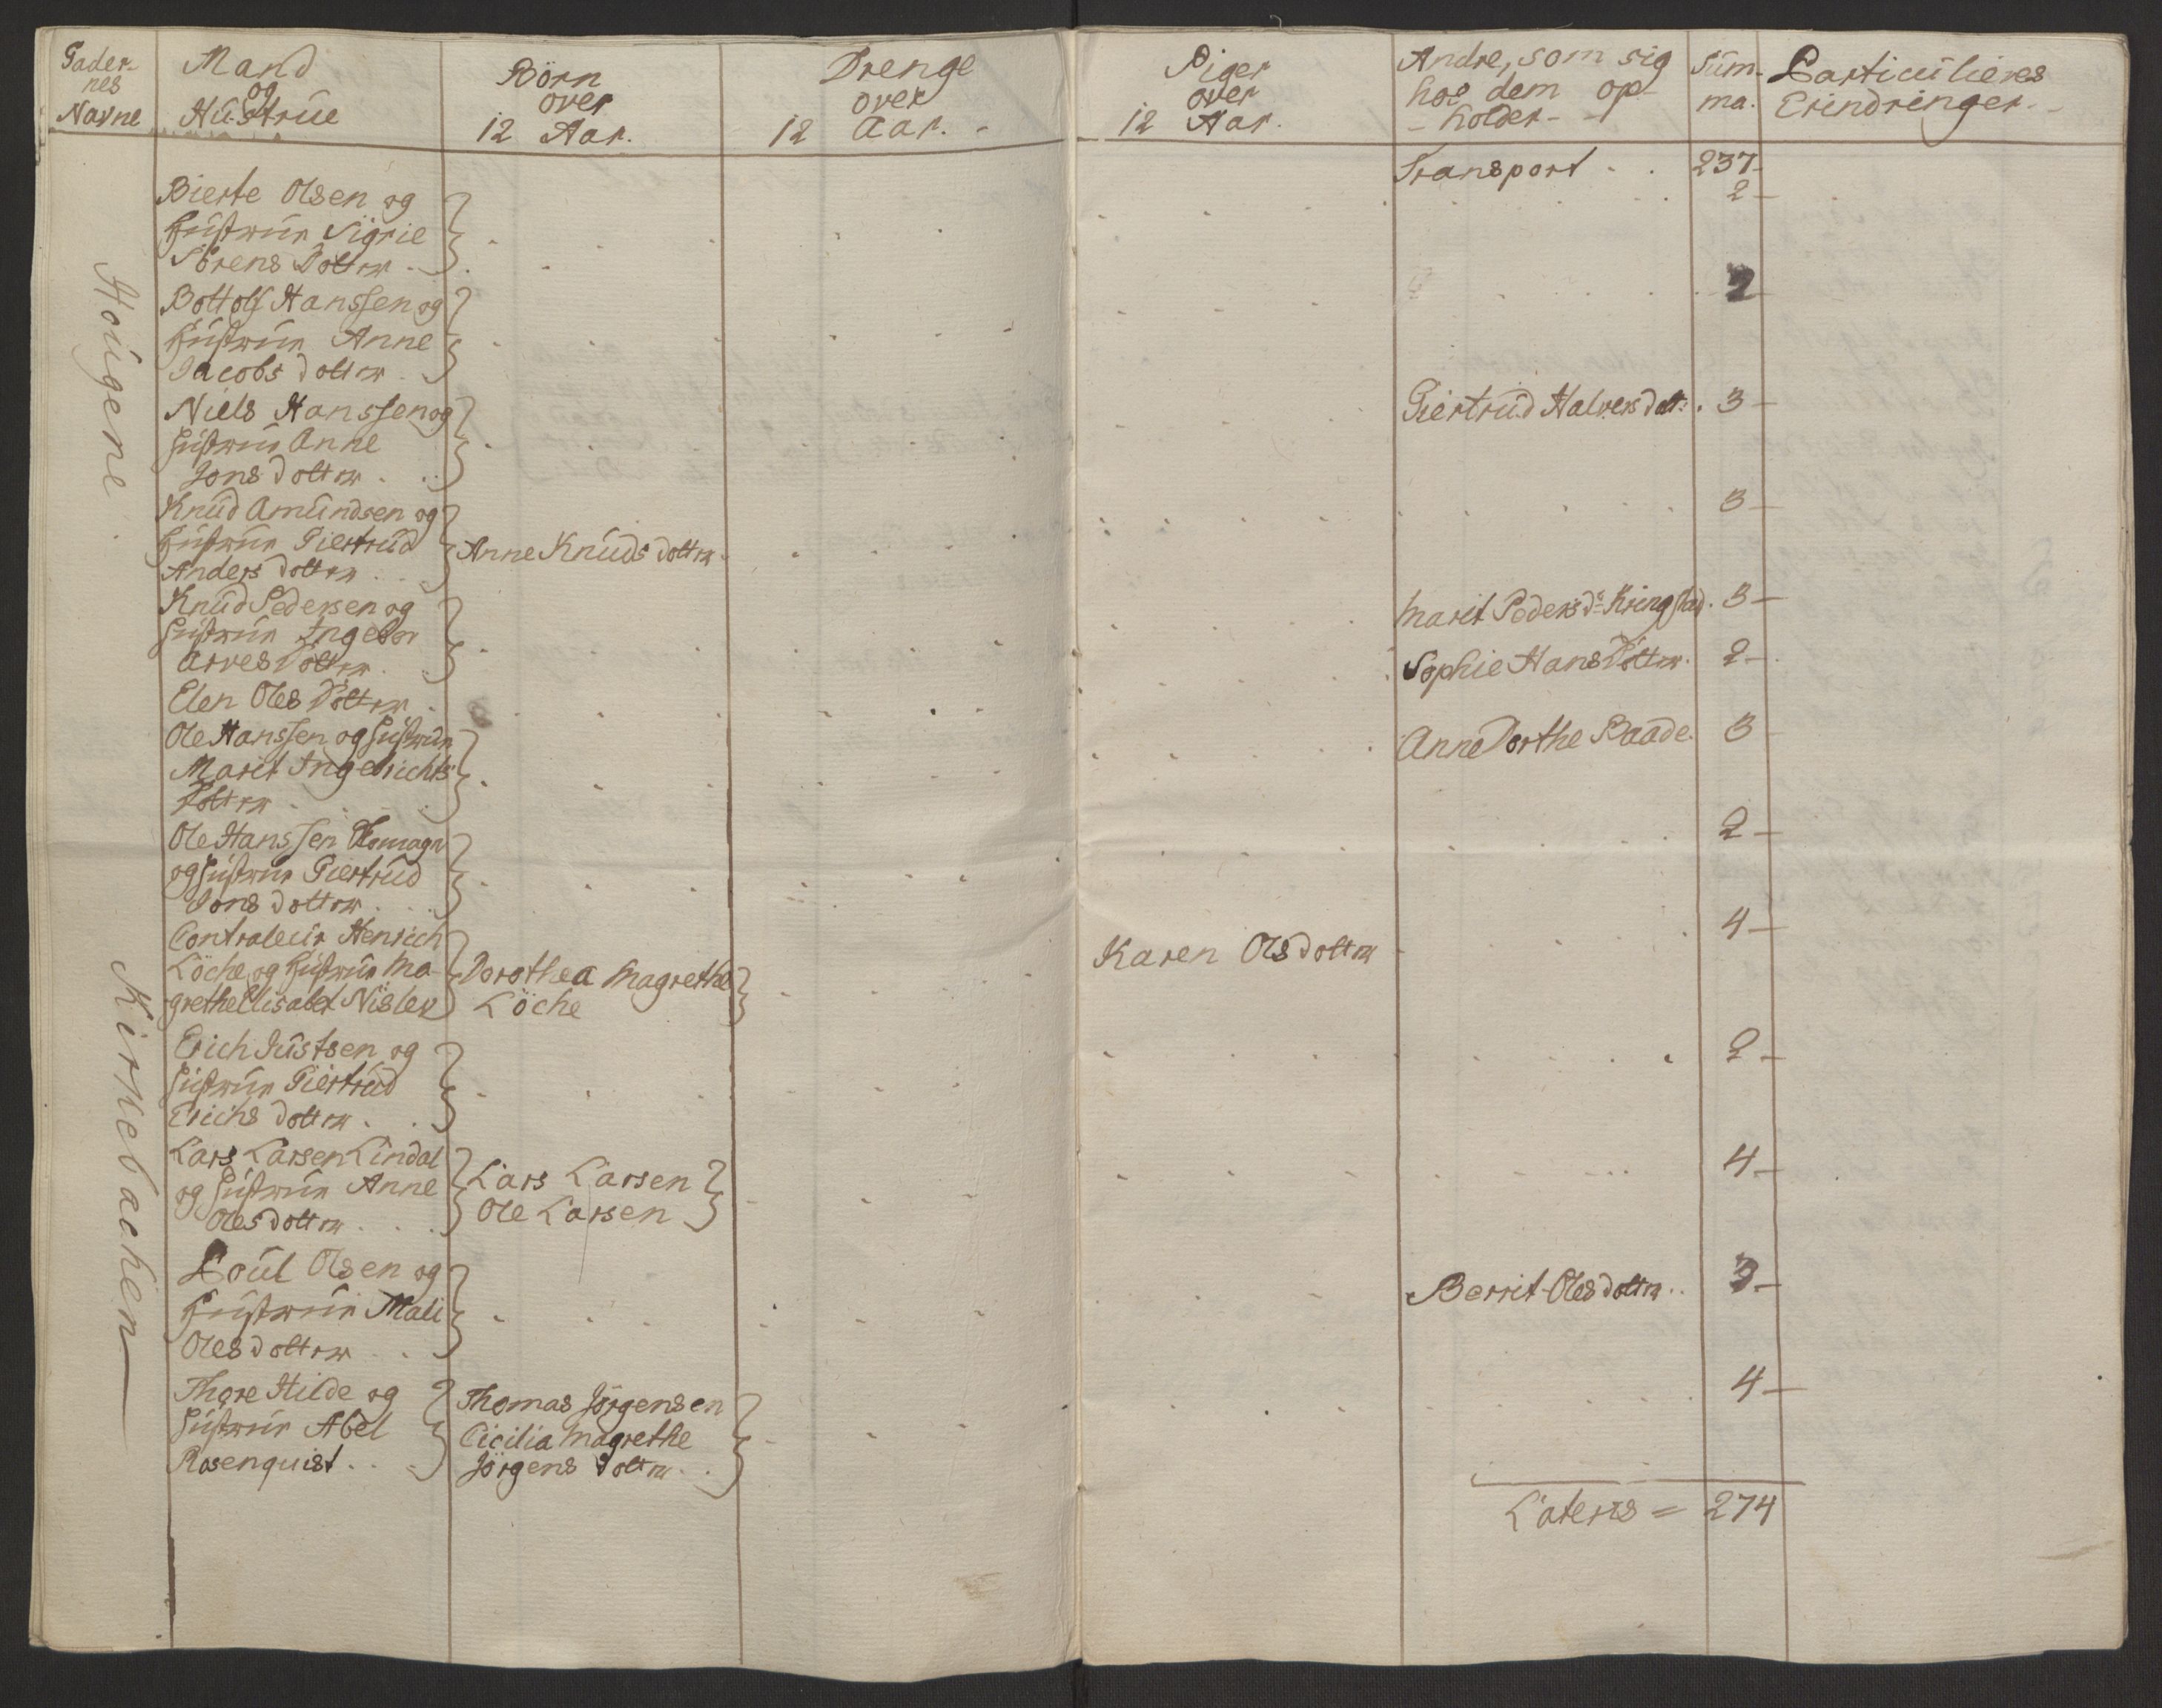 Gader-
nes
Navne
Mand
og
Hustrue
Börn
over
12 Aar.
Drenge
over
12 Aar.
Piger
over
12 Aar.
Andre, som sig
hos dem op-
- holder -
Sum-
ma.
Particulieres
Erindringer
Transport . . 237
Hougene
Bierte Olsen og
Hustrue Sigrie
Sörens Dotter . . 2
Bottolf Hanssen og
Hustrue Anne
Jacobs dotter . 2
Niels Hanssen og
Hustrue Anne
Jons dotter . .
Giertrud Halvers datt: . 3
Knud Amundsen og
Hustrue Giertrud
Anders dotter . .
Anne Knuds dotter 3
Knud Pedersen og
Hustrue Ingebor
Arves Dotter .
Marit Peders dr Kringstad . 3
Elen Oles Dotter .
Sophie Hans Dotter . 2
Ole Hanssen og Hustrue
Marit Ingebrichts
Dotter .
Anne Dorthe Raade . 3
Ole Hanssen
og Hustrue Giertrud
Jons dotter . . 2
Kirkebachen
Contraleur Henrich
Löche og Hustrue Ma-
grethe Elisabet Nisler
Dorothea Magrethe
Löche
Karen Ols dotter 4
Erich Justsen og
Hustrue Giertrud
Erichs dotter . . 2
Lars Larsen Lindal
og Hustrue Anne
Oles dotter . . .
Lars Larsen
Ole Larsen 4
Poul Olsen og
Hustrue Mali
Oles dotter . .
Berrit Oles dotter . . 3
Thore Hilde og
Hustrue Abel
Rosenquist . . .
Thomas Jörgensen
Cicilia Magrethe
Jörgens dotter . . 4
Lateris = 274